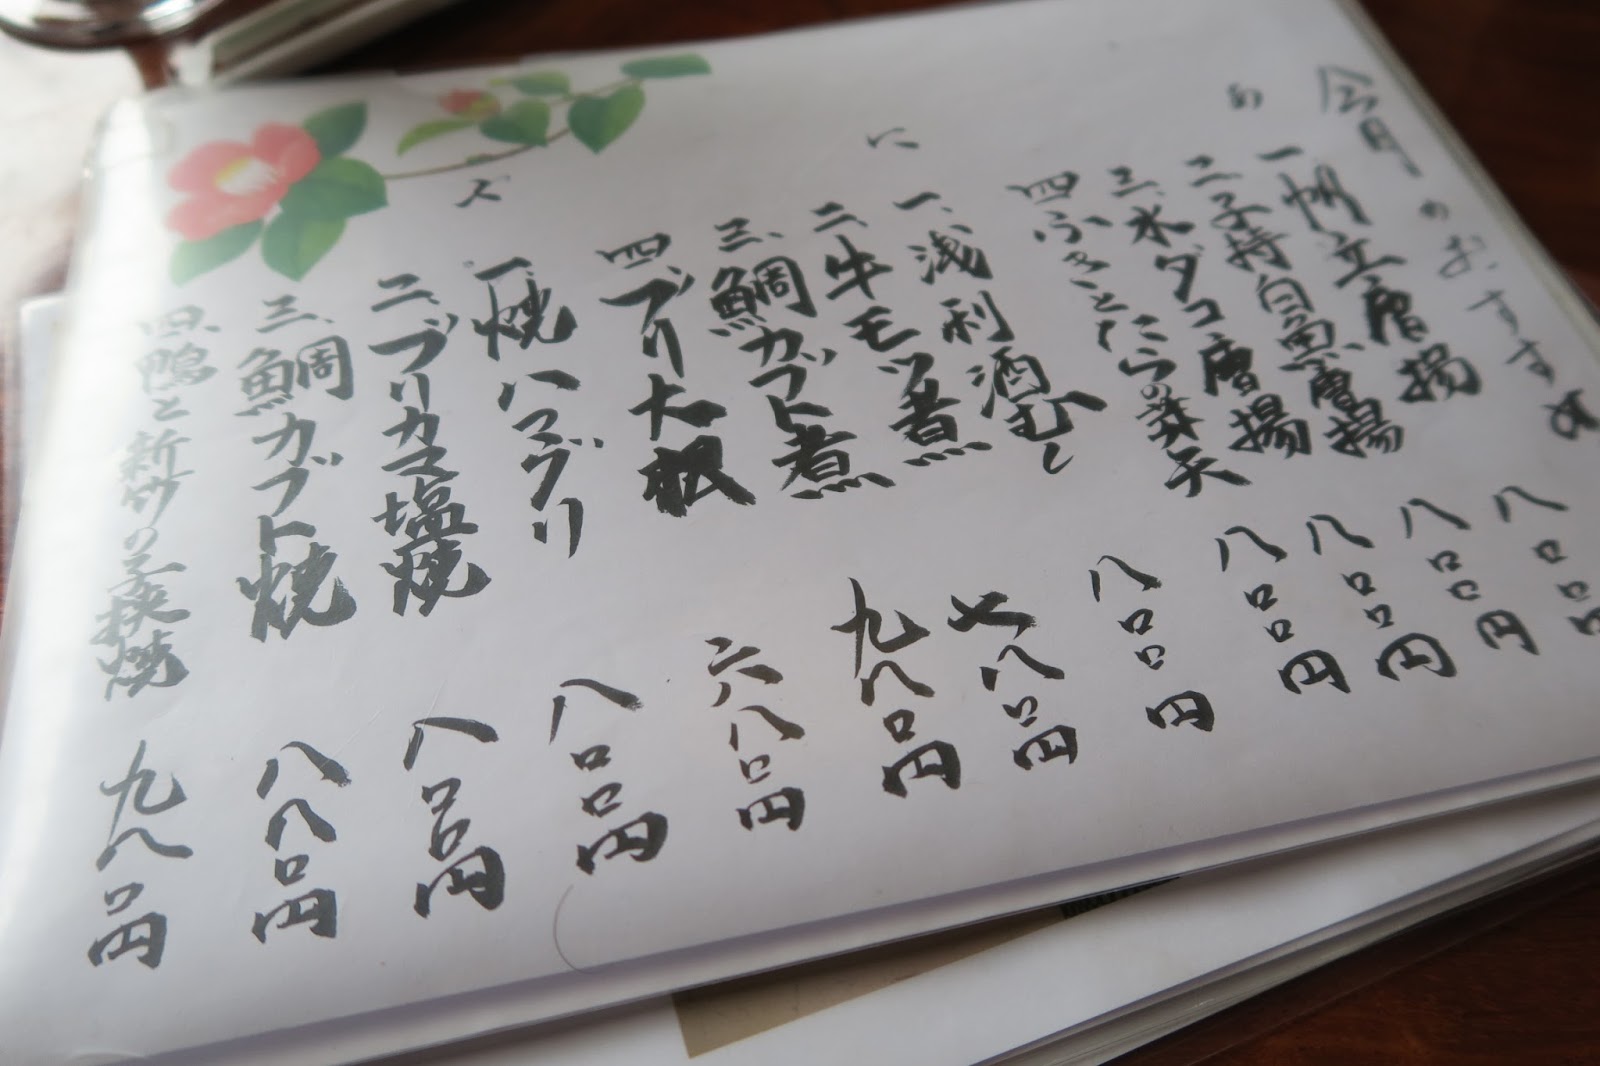 今月のおすすめ
あ
一、帆立唐揚 八〇〇
二、子持白魚唐揚 八〇〇円
三、水ダコ唐揚 八〇〇円
四、ふきとたらの芽天 八〇〇円
に
一、浅利酒むし 八〇〇円
二、牛モツ煮 七八〇円
三、鯛カブト煮 九八〇円
四、ブリ大根 六八〇円
一、焼ハマグリ 八〇〇円
二、ブリカマ塩焼 八〇〇円
三、鯛カブト焼 八八〇円
四、鴨と新竹の子挟焼 九八〇円